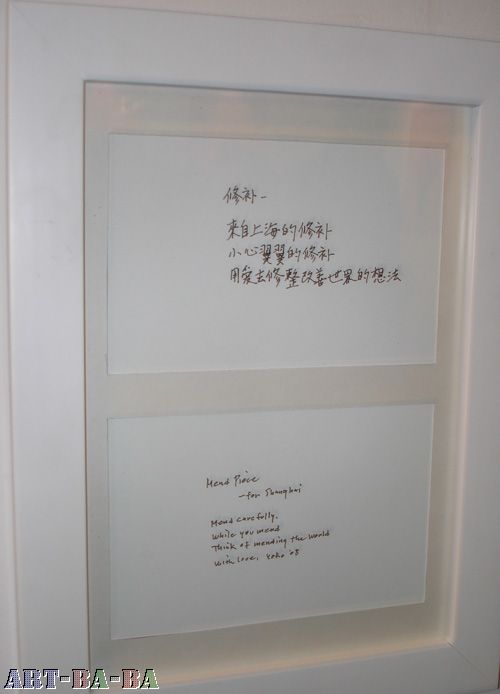 修补 –
來自上海的修补
小心翼翼的修补
用爱去修整改善世界的想法
Mend Piece
– for Shanghai
Mend carefully.
While you mend
Think of mending the world
with love, yoko '08
ART-BA-BA